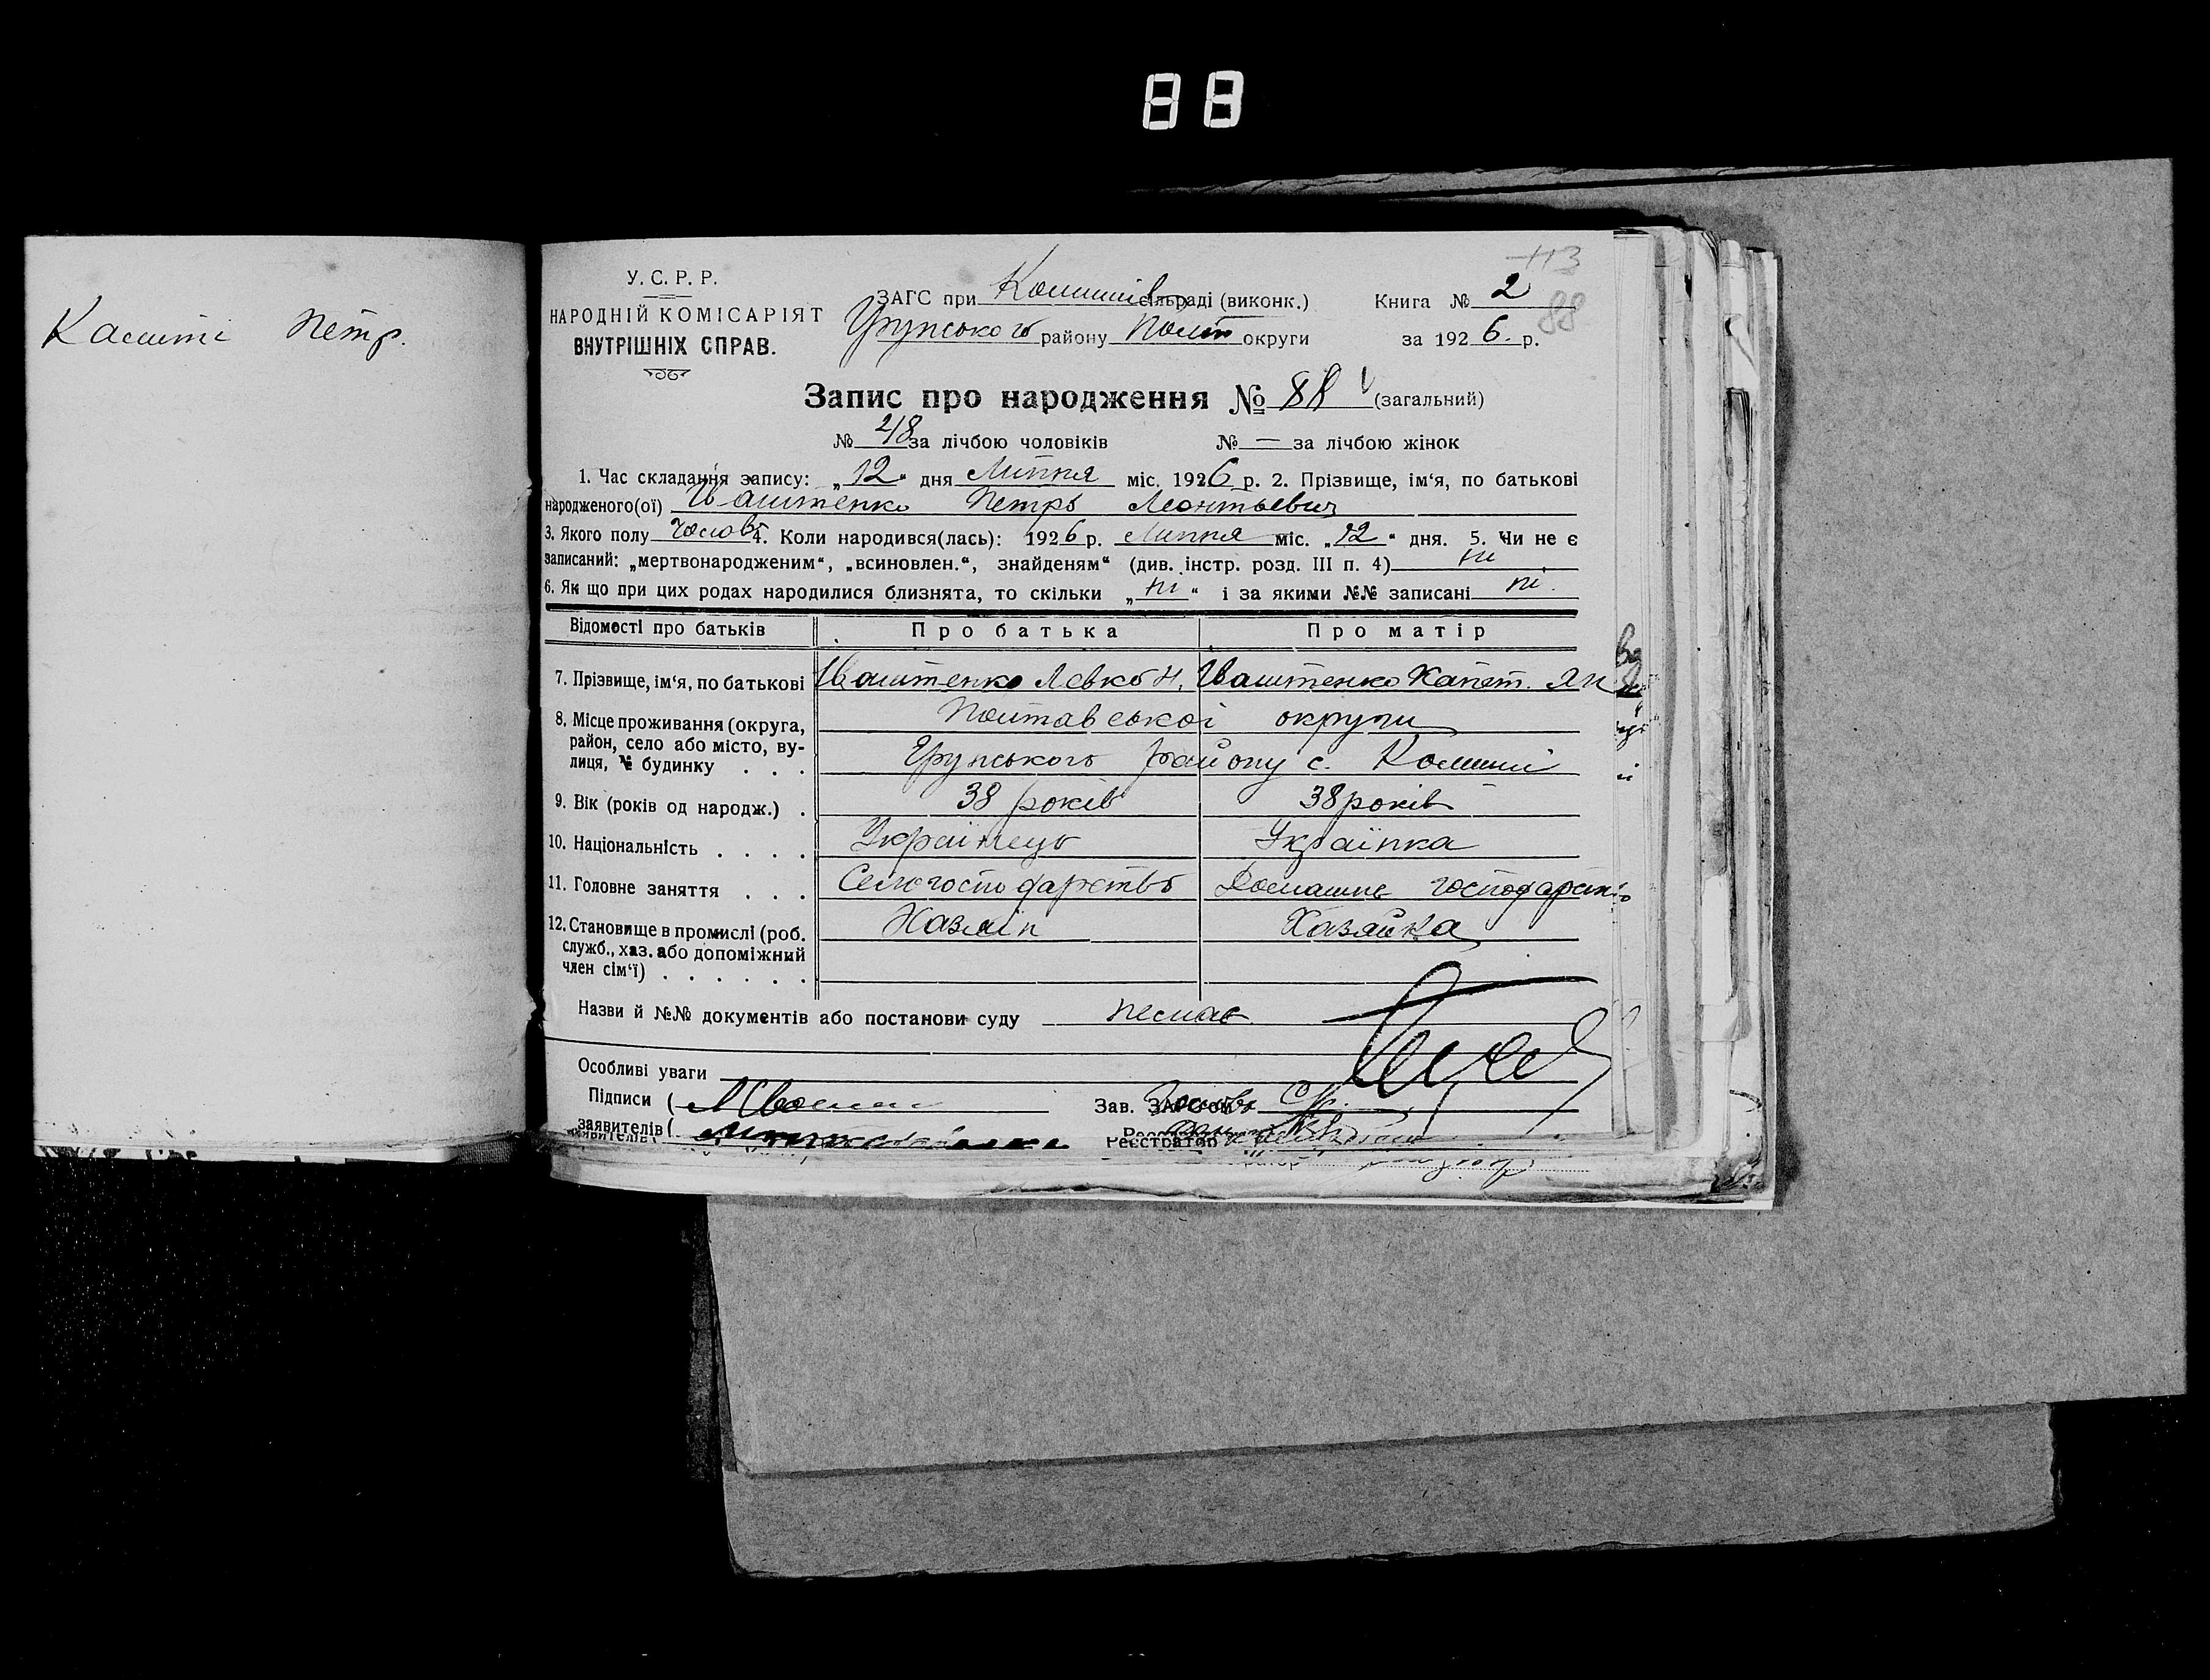 88
Калити Петр.
113
88
У. С. Р. Р.
НАРОДНІЙ КОМІСАРІЯТ
ВНУТРІШНІХ СПРАВ.
ЗАГС при сільраді (виконк.)
Грунського району Полт округи
Книга № 2
за 1926. р.
Запис про народження № 88 (загальний)
№ 48 за лічбою чоловіків № — за лічбою жінок
1. Час складання запису: „12“ дня Липня міс. 1926 р. 2. Прізвище, ім‘я, по батькові
народженого(ої) Іваштенко Петро Леонтьевич
3. Якого полу Чолов 4. Коли народився(лась): 1926 р. Липня міс. „12“ дня. 5. Чи не є
записаний: „мертвонародженим“, „всиновлен.“, знайденям“ (див. інстр. розд. III п. 4) ні
6. Як що при цих родах народилися близнята, то скільки „ні“ і за якими №№ записані ні.
Відомості про батьків Про батька Про матір
7. Прізвище, ім‘я, по батькові Іваштенко Левко Н. Іваштенко Капет. Як
8. Місце проживання (округа, Полтавської округи
район, село або місто, ву-
лиця, № будинку . . . Грунського району с.
9. Вік (років од народж.) . 38 років 38 років
10. Національність . . . . Українець Українка
11. Головне заняття . . . Селогосподарство Домашнє господарство
12. Становище в промислі (роб. Хазяїн Хазяйка
служб., хаз. або допоміжний
член сім‘ї) . . . . . .
Назви й №№ документів або постанови суду немає
Особливі уваги
Підписи (
Зав. ЗАГСОМ
заявителів (
Реєстратор